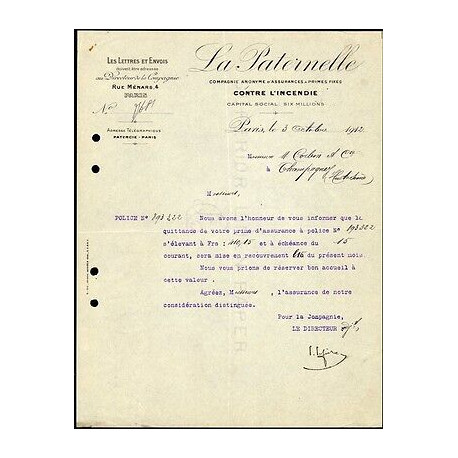 LES LETTRES ET ENVOIS
doivent être adressés
au Directeur de la Compagnie
RUE MÉNARS, 4
PARIS
No
ADRESSE TÉLÉGRAPHIQUE
PATERCIE - PARIS
La Paternelle
COMPAGNIE ANONYME D'ASSURANCES A PRIMES FIXES
CONTRE L'INCENDIE
CAPITAL SOCIAL SIX MILLIONS
Paris, le 3 Octobre 1912
à Champagney
Messieurs,
POLICE No 193222 Nous avons l'honneur de vous informer que la
quittance de votre prime d'assurance à police No 193222
s'élevant à Frs : 15 et à échéance du 15
courant, sera mise en recouvrement du présent mois
Nous vous prions de réserver bon accueil à
cette valeur .
Agréez, Messieurs , l'assurance de notre
considération distinguée.
Pour la Compagnie,
LE DIRECTEUR